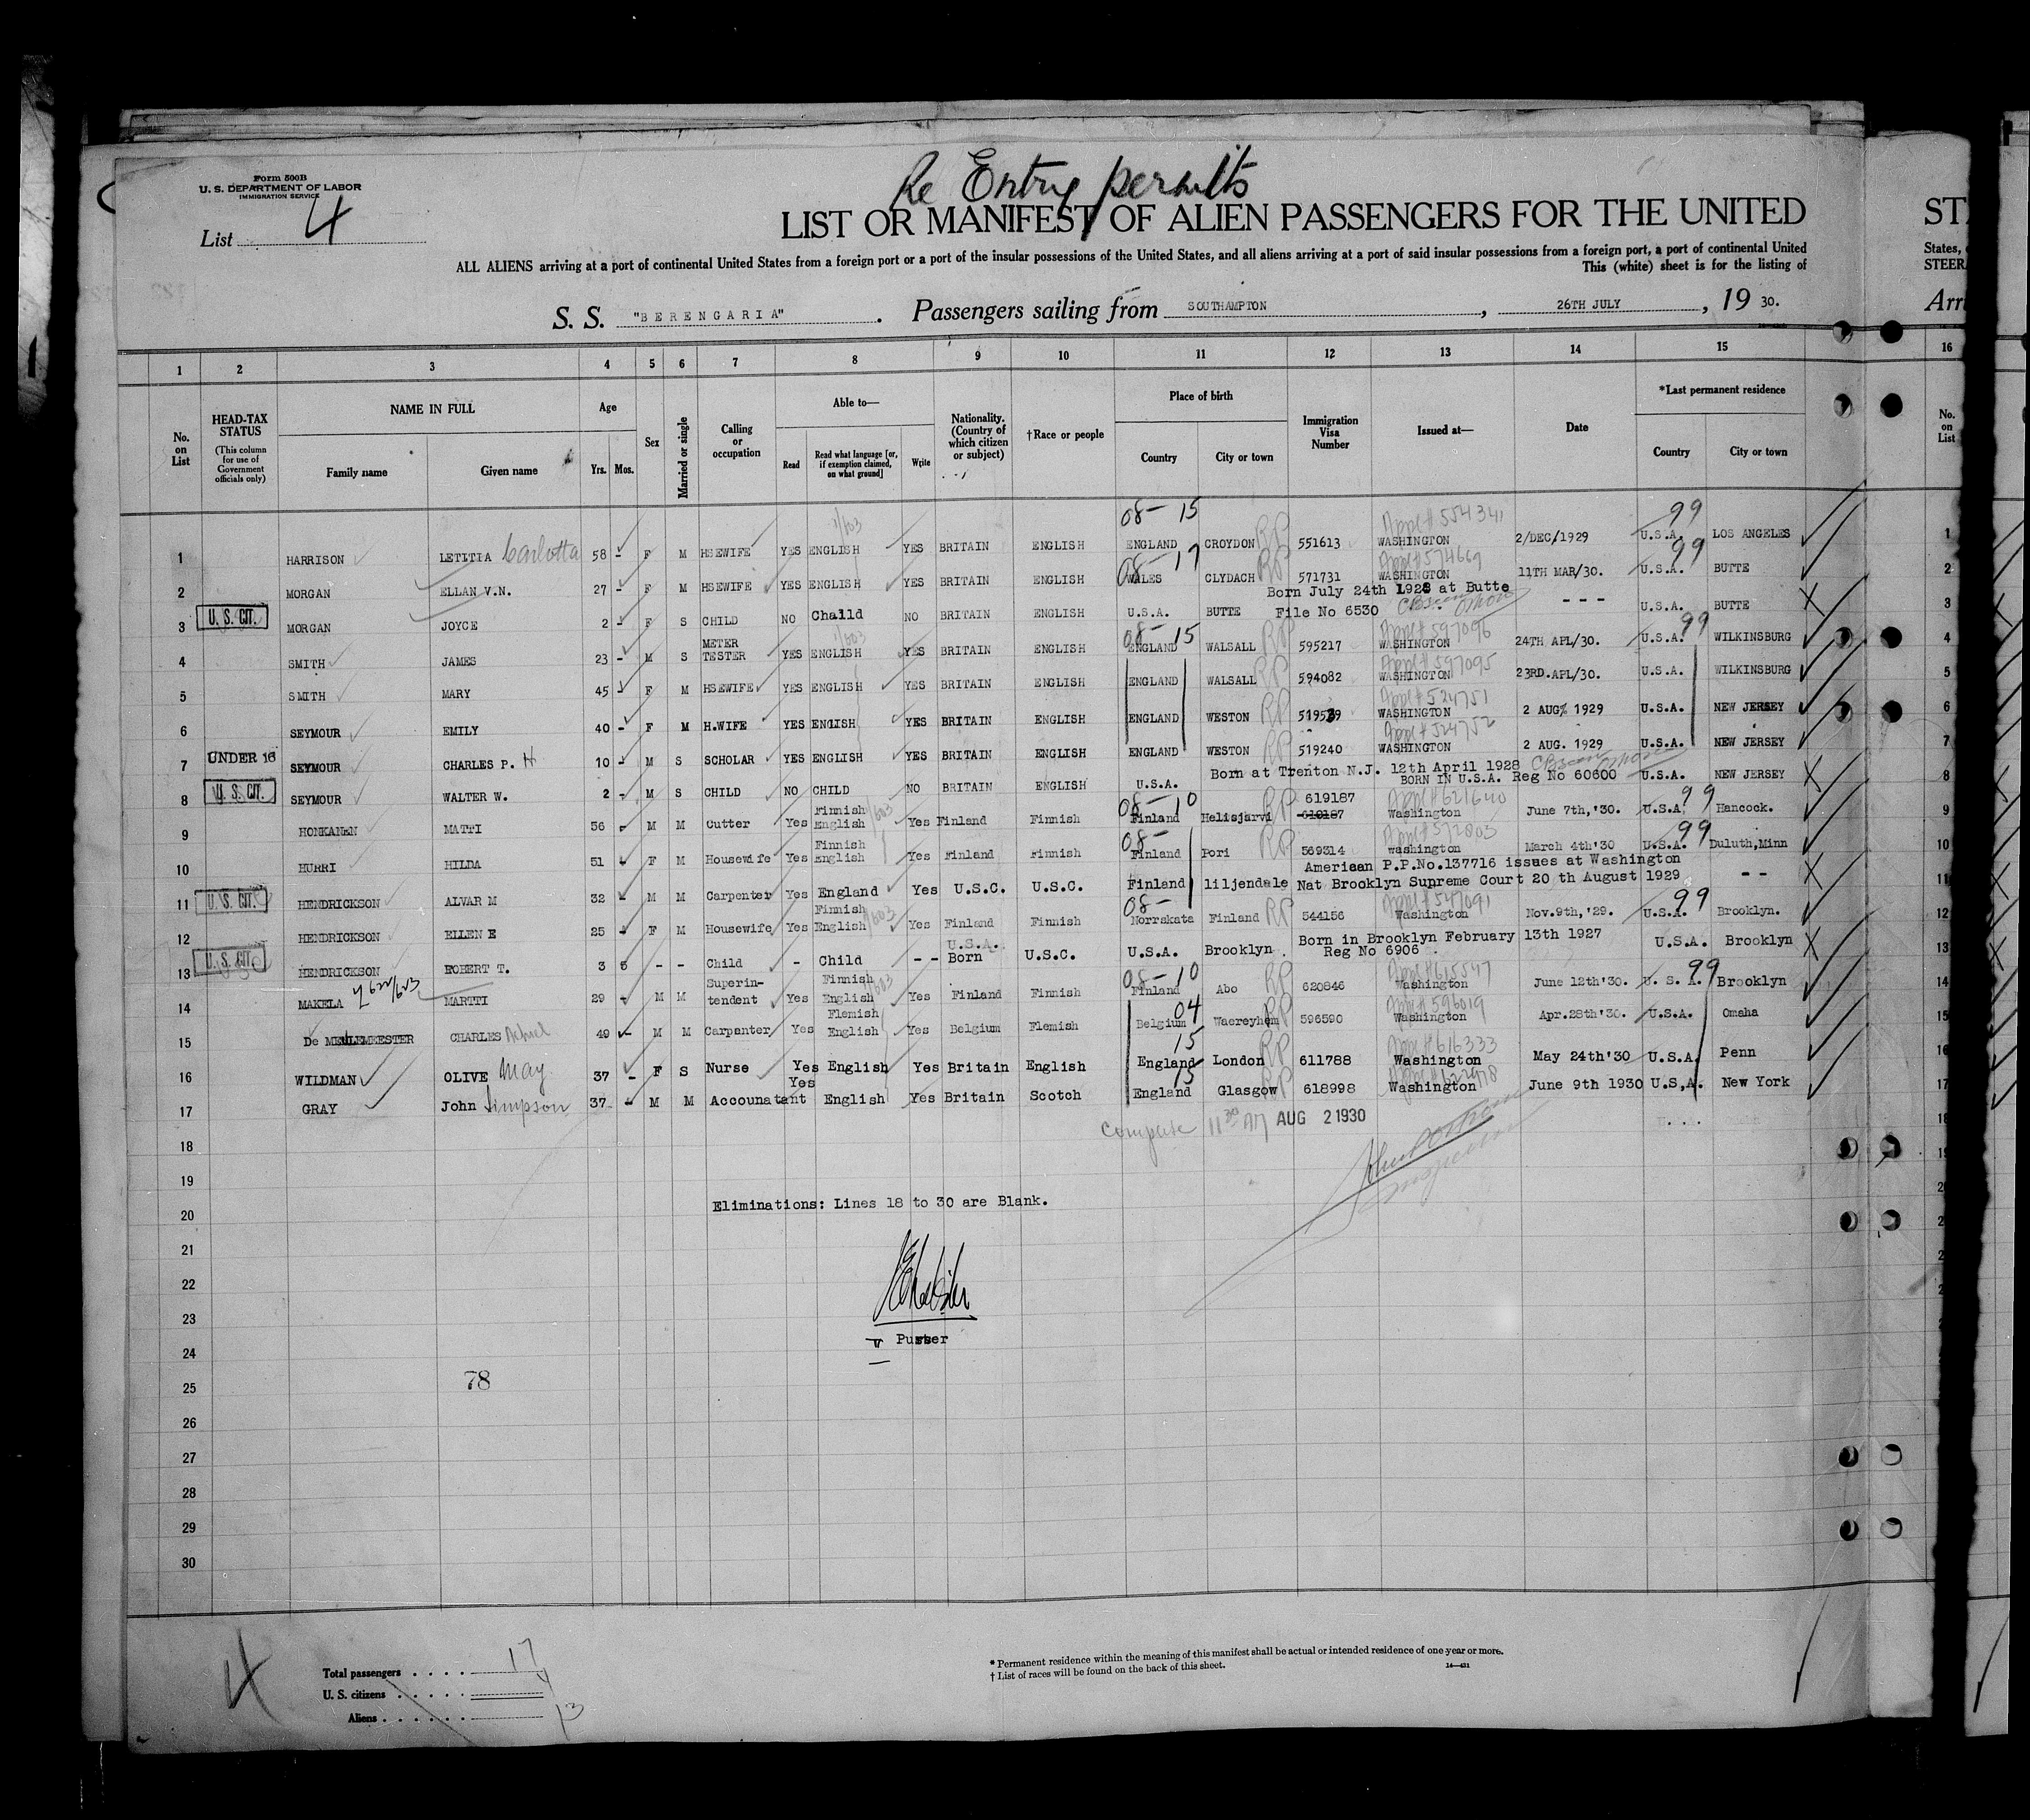 Re Entry permits
Form 500B
U. S. DEPARTMENT OF LABOR
IMMIGRATION SERVICE
List 4
LIST OR MANIFEST OF ALIEN PASSENGERS FOR THE UNITED
ST
ALL ALIENS arriving at a port of continental United States from a foreign port or a port of the insular possessions of the United States, and all aliens arriving at a port of said insular possessions from a foreign port, a port of continental United
States,
This (white) sheet is for the listing of
STEER
S. S. "BERENGARIA". Passengers sailing from SOUTHAMPTON, 26TH JULY, 19 30.
Arr
1 2 3 4 5 6 7 8 9 10 11 12 13 14 15 16
No. on List
HEAD-TAX STATUS (This column for use of Government officials only)
NAME IN FULL
Family name Given name
Age
Yrs. Mos.
Sex
Married or single
Calling or occupation
Able to—
Read Read what language [or, if exemption claimed, on what ground] Write
Nationality. (Country of which citizen or subject)
†Race or people
Place of birth
Country City or town
Immigration Visa Number
Issued at—
Date
*Last permanent residence
Country City or town
No. on List
08- 15 Appl# 554341 99
1 HARRISON LETITIA Carlotta 58 - F M HSEWIFE YES ENGLISH YES BRITAIN ENGLISH ENGLAND CROYDON RP 551613 WASHINGTON 2/DEC/1929 U.S.A. LOS ANGELES 1
08- 17 Appl# 574669 99
2 MORGAN ELLAN V.N. 27 - F M HSEWIFE YES ENGLISH YES BRITAIN ENGLISH WALES CLYDACH RP 571731 WASHINGTON 11TH MAR/30. U.S.A. BUTTE 2
Born July 24th 1928 at Butte
U. S. CIT.
3 MORGAN JOYCE 2 - F S CHILD NO Chaild NO BRITAIN ENGLISH U.S.A. BUTTE File No 6530 - - - U.S.A. BUTTE 3
08- 15 Appl# 597096 99
4 SMITH JAMES 23 - M S METER TESTER YES ENGLISH YES BRITAIN ENGLISH ENGLAND WALSALL RP 595217 WASHINGTON 24TH APL/30. U.S.A. WILKINSBURG 4
Appl# 597095
5 SMITH MARY 45 - F M HSEWIFE YES ENGLISH YES BRITAIN ENGLISH ENGLAND WALSALL RP 594082 WASHINGTON 23RD.APL/30. U.S.A. WILKINSBURG 5
Appl# 524751
6 SEYMOUR EMILY 40 - F M H.WIFE YES ENGLISH YES BRITAIN ENGLISH ENGLAND WESTON RP 519539 WASHINGTON 2 AUG 1929 U.S.A. NEW JERSEY 6
Appl# 524752
UNDER 16
7 SEYMOUR CHARLES P. H 10 - M S SCHOLAR YES ENGLISH YES BRITAIN ENGLISH ENGLAND WESTON RP 519240 WASHINGTON 2 AUG. 1929 U.S.A. NEW JERSEY 7
Born at Trenton N.J. 12th April 1928
U. S. CIT.
8 SEYMOUR WALTER W. 2 - M S CHILD NO CHILD NO BRITAIN ENGLISH U.S.A. BORN IN U.S.A. Reg No 60600 U.S.A. NEW JERSEY 8
08- 10 619187 Appl# 621640 99
9 HONKANEN MATTI 56 - M M Cutter Yes Finnish English Yes Finland Finnish Finland Helisjarvi RP 619187 Washington June 7th,'30. U.S.A. Hancock. 9
08- Appl# 572803 99
10 HURRI HILDA 51 - F M Housewife Yes Finnish English Yes Finland Finnish Finland Pori RP 569314 washington March 4th'30 U.S.A. Duluth,Minn 10
Ameriaan P.P.No.137716 issues at Washington
U. S. CIT.
11 HENDRICKSON ALVAR M 32 - M M Carpenter Yes England Yes U.S.C. U.S.C. Finland liljendale Nat Brooklyn Supreme Court 20 th August 1929 - - 11
08- Appl# 547091 99
12 HENDRICKSON ELLEN E 25 - F M Housewife Yes Finnish English Yes Finland Finnish Norrskata Finland RP 544156 Washington Nov.9th,'29. U.S.A. Brooklyn. 12
Born in Brooklyn February 13th 1927
U. S. CIT.
13 HENDRICKSON ROBERT T. 3 5 - - Child - Child - - U.S.A. Born U.S.C. U.S.A. Brooklyn Reg No 6906 U.S.A. Brooklyn 13
08- 10 Appl# 615547 99
14 MAKELA MARTTI 29 - M M Superin-tendent Yes Finnish English Yes Finland Finnish Finland Abo RP 620846 Washington June 12th'30. U. S. A. Brooklyn 14
04 Appl# 596019
15 De MEULEMEESTER CHARLES 49 - M M Carpenter Yes Flemish English Yes Belgium Flemish Belgium Waereyhem RP 596590 Washington Apr.28th'30. U.S.A. Omaha 15
15 Appl# 616333
16 WILDMAN OLIVE May 37 - F S Nurse Yes English Yes Britain English England London RP 611788 Washington May 24th'30 U.S.A. Penn 16
15
17 GRAY John Simpson 37 - M M Accounatant Yes English Yes Britain Scotch England Glasgow RP 618998 Washington June 9th 1930 U.S,A. New York 17
18 11 30 AM AUG 2 1930 18
19
Eliminations: Lines 18 to 30 are Blank.
20
21
22
23
Purser
24
25 78
26
27
28
29
30
4
Total passengers . . . . 17
U. S. citizens . . . . . 4
Aliens . . . . . . 13
* Permanent residence within the meaning of this manifest shall be actual or intended residence of one year or more.
† List of races will be found on the back of this sheet.
14—421